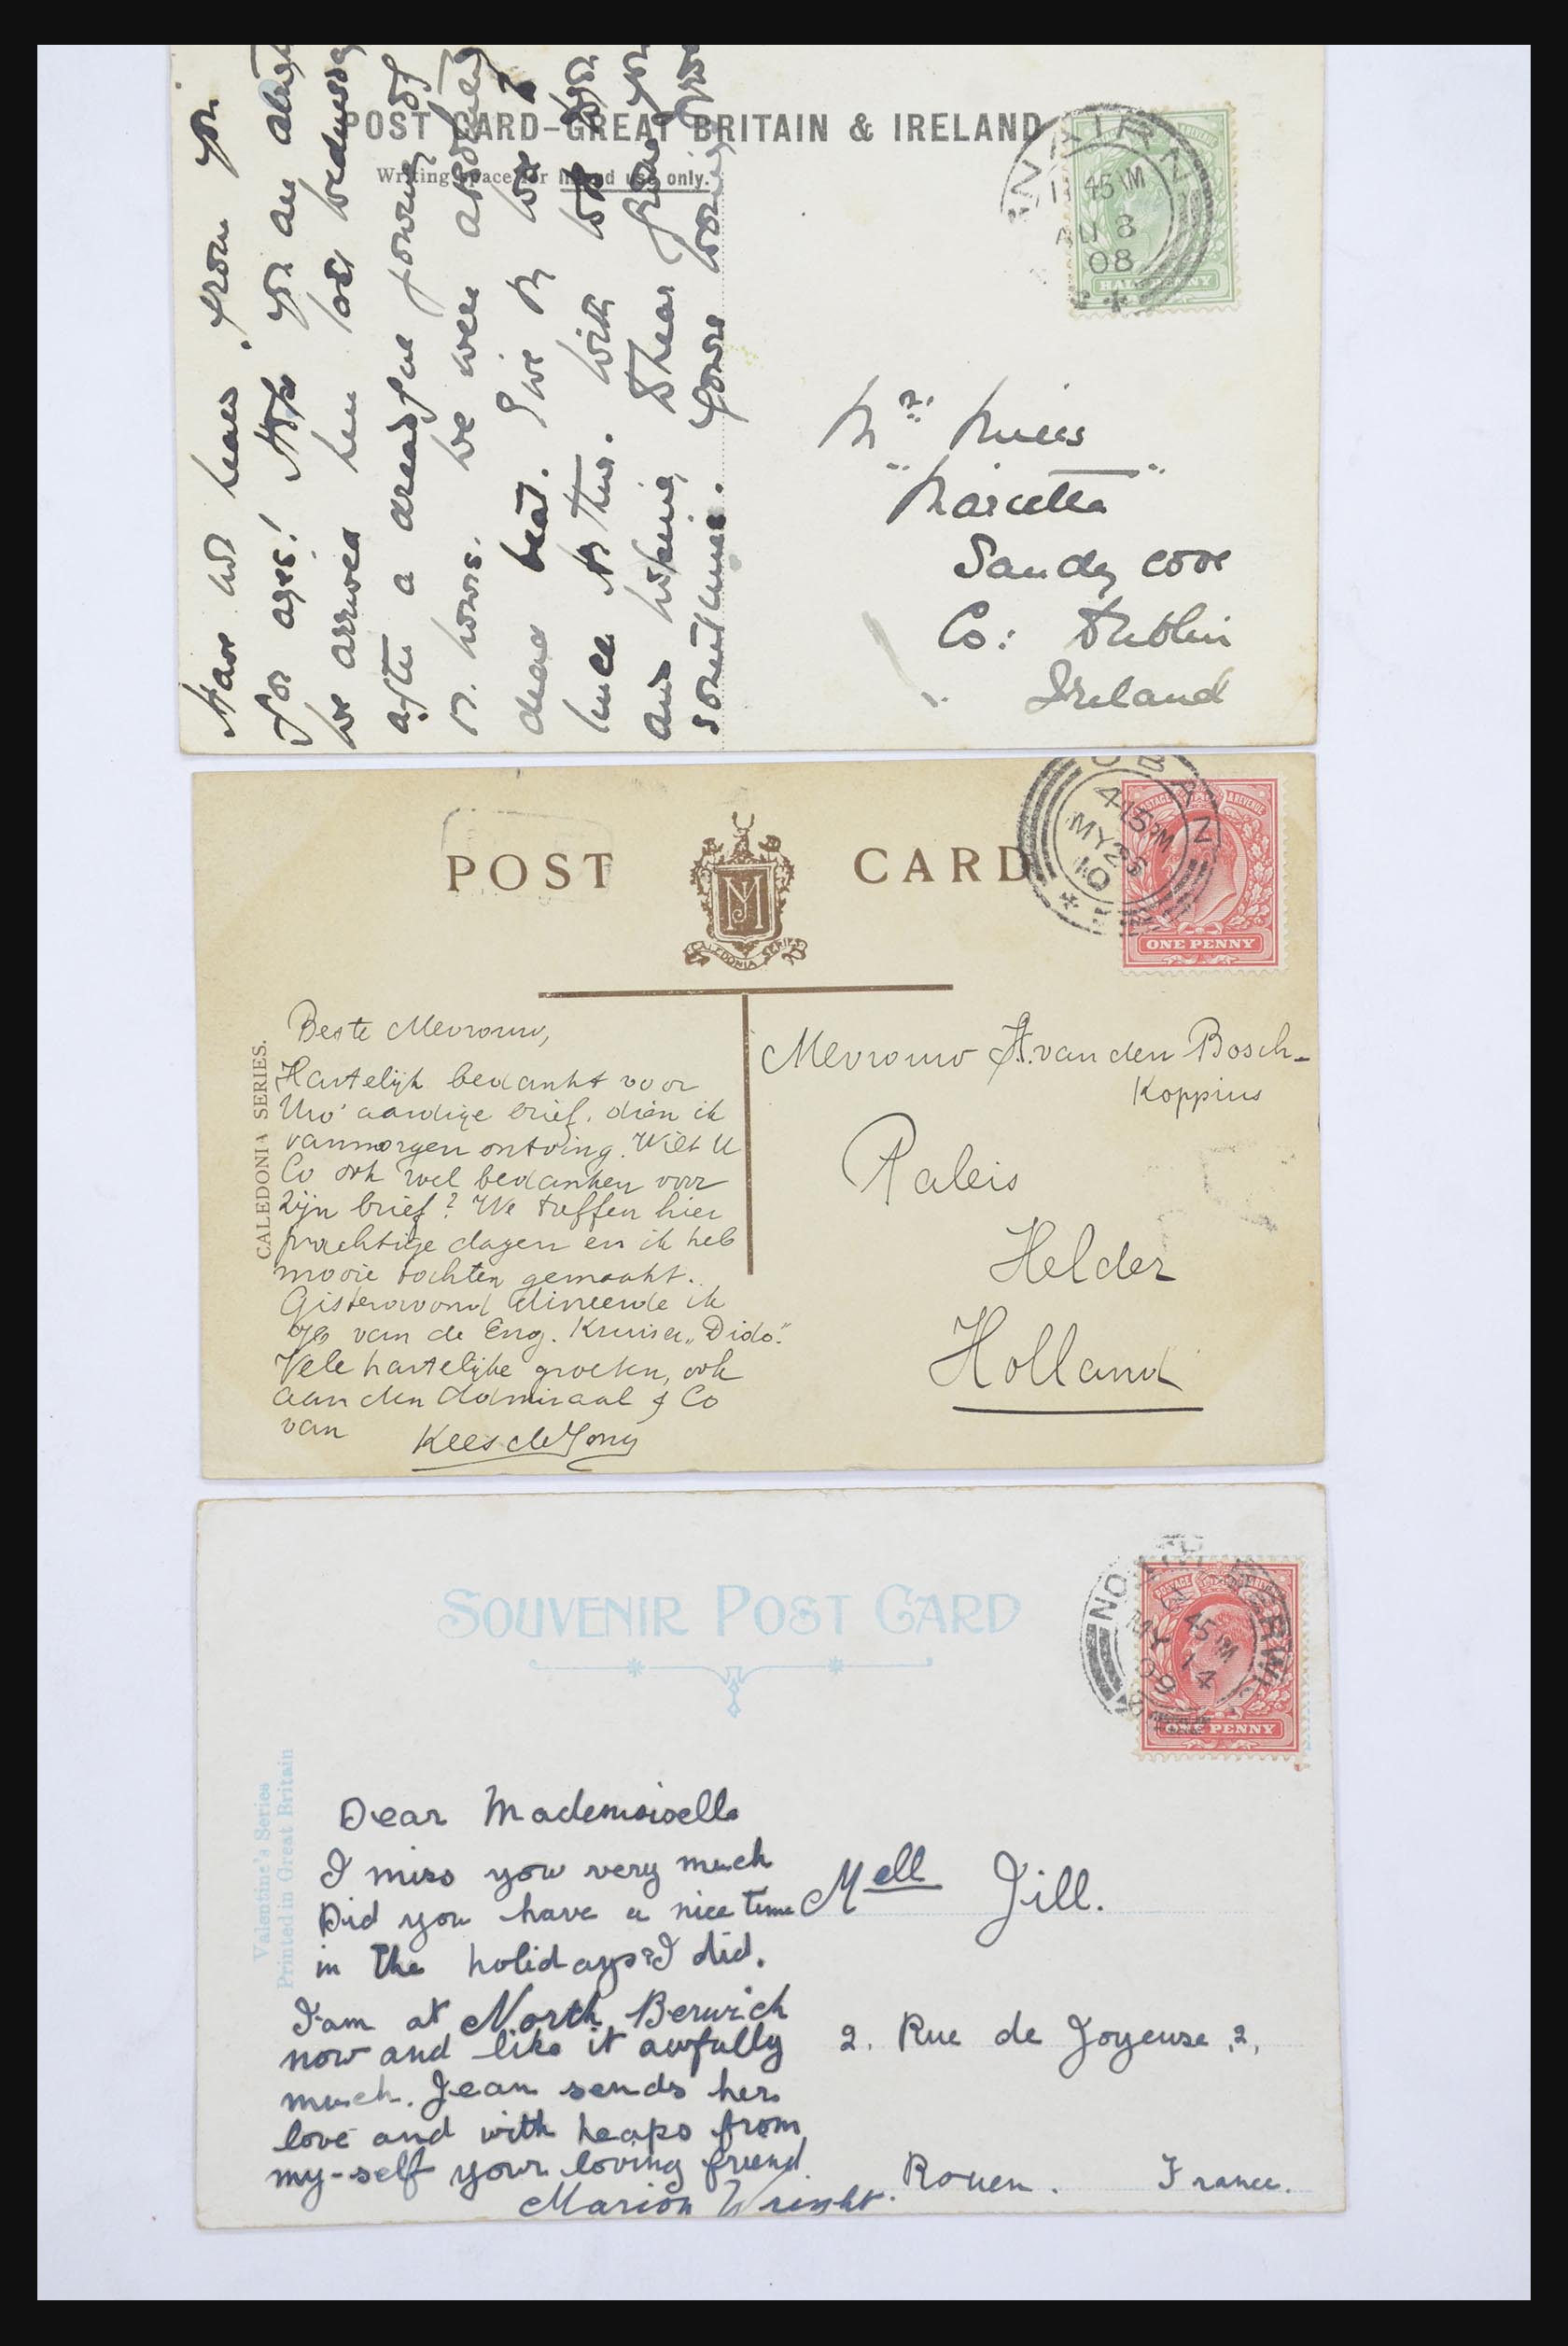 POST CARD-GREAT BRITAIN & IRELAND
Writing space for inland use only.
45 AM
AU 8
08
HALFPENNY
Have not heard from you
for ages! Hope you are
We arrived here last Wednesday
after a dreadful journey of
hours. We were absolutely
dead beat. Give my love to
Mother. With love to you
and hoping to hear from you
sometime. Yours
Sandy cove
Co: Dublin
Ireland
POST CARD
JM
CALEDONIA SERIES
OBAN
415 PM
MY 26
10
POSTAGE & REVENUE
ONE PENNY
CALEDONIA SERIES.
Beste Mevrouw,
Hartelijk bedankt voor
Uw aardige brief, dien ik
vanmorgen ontving. Wilt U
Co ook wel bedanken voor
zijn brief? We treffen hier
prachtige dagen en ik heb
mooie tochten gemaakt.
Gisteravond dineerde ik
van de Eng. Kruiser „Dido".
Vele hartelijke groeten, ook
aan den Admiraal & Co
van
Kees de Jong
Mevrouw A. van den Bosch-
Koppius
Paleis
Helder
Holland
SOUVENIR POST CARD
NORTH BERWICK
45 PM
MY 14
09
ONE PENNY
Valentine's Series
Printed in Great Britain
Dear Mademoiselle
I miss you very much
Did you have a nice time
in the holidays? I did.
I am at North Berwick
now and like it awfully
much. Jean sends her
love and with heaps from
my-self your loving friend
Marion Wright.
Mell Jill.
2. Rue de Joyeuse, 2,
Rouen. France.